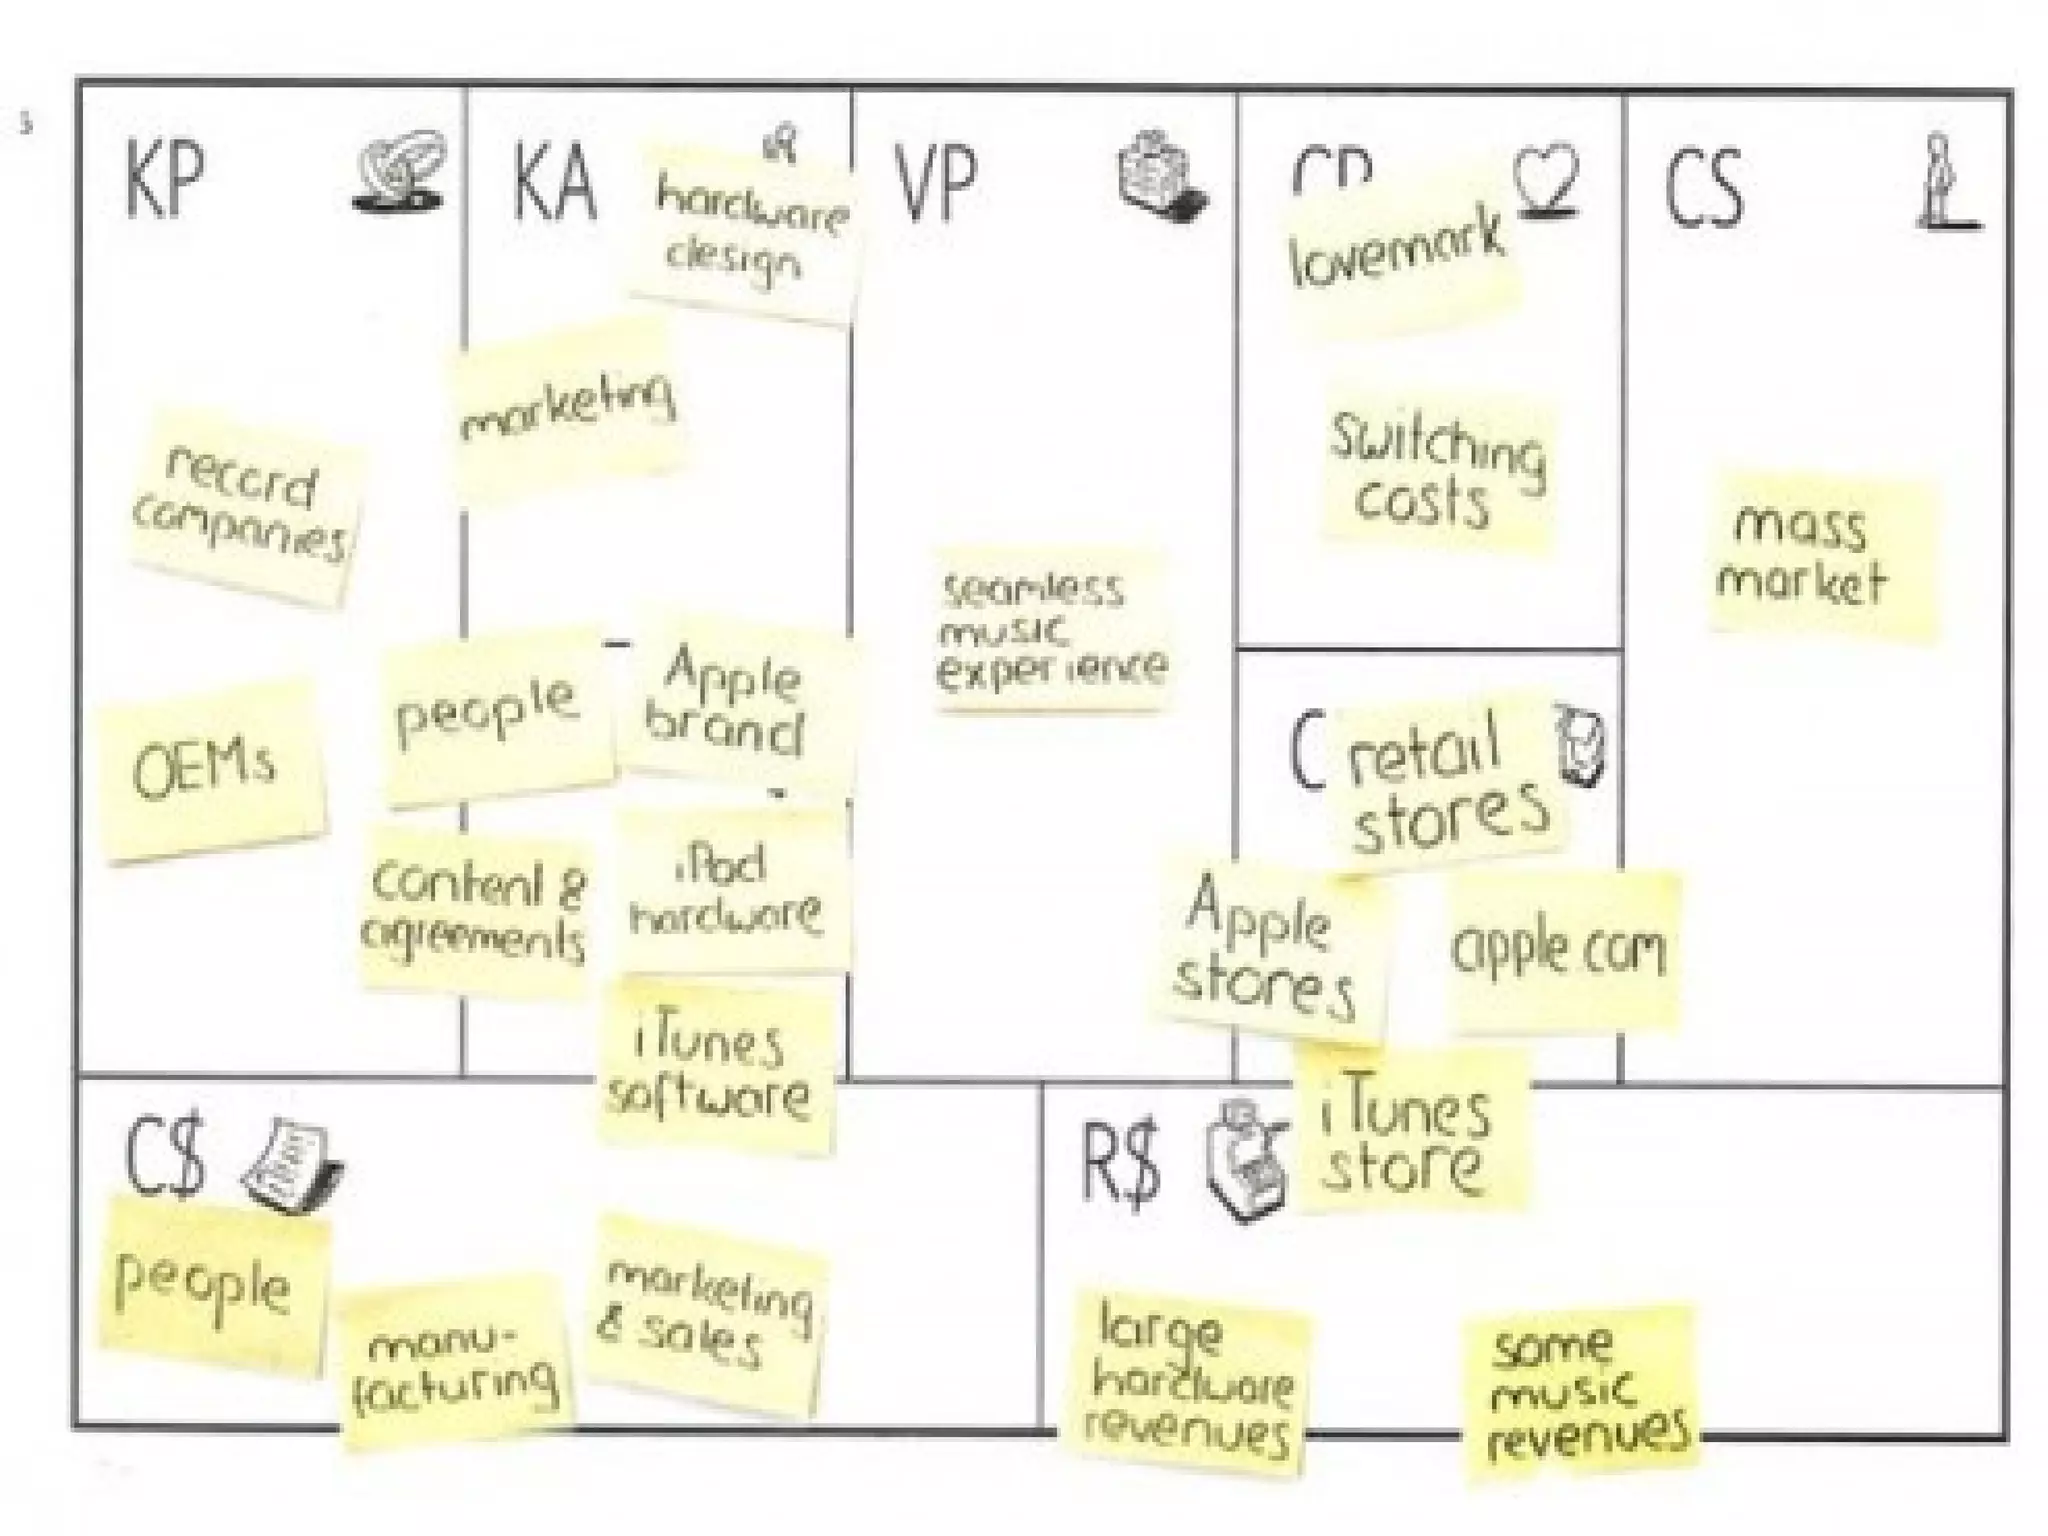 KP
record
companies
OEMs
KA
hardware
design
marketing
people
Apple
brand
content &
agreements
iPod
hardware
iTunes
software
VP
seamless
music
experience
lovemark
switching
costs
C
retail
stores
Apple
stores
apple.com
iTunes
store
CS
mass
market
C$
people
manu-
facturing
marketing
& sales
R$
large
hardware
revenues
some
music
revenues